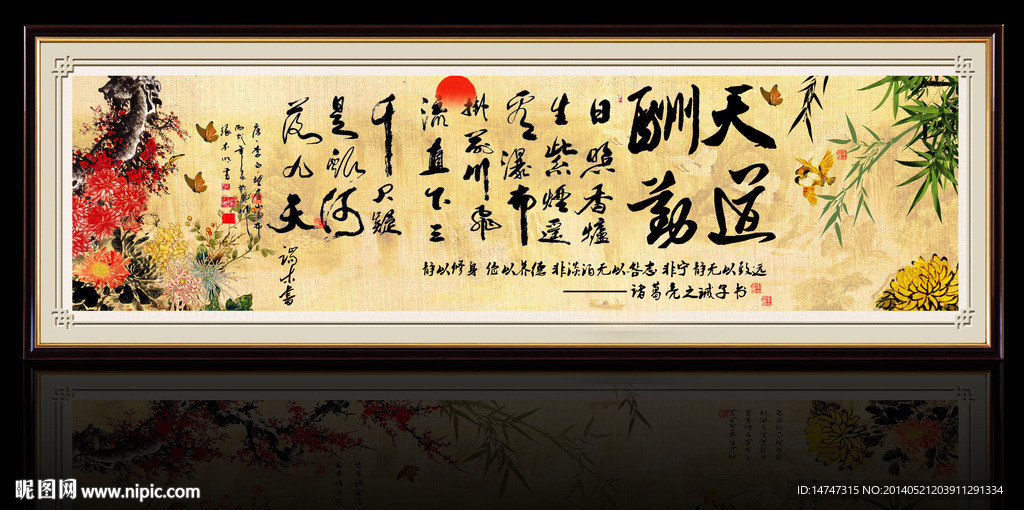 天道
酬勤
日照香爐
生紫煙遥
看瀑布
掛前川飛
流直下三
千尺疑
是銀河
落九天
静以修身 俭以养德 非淡泊无以明志 非宁静无以致远
——诸葛亮之诫子书
昵图网 www.nipic.com
ID:14747315 NO:20140521203911291334